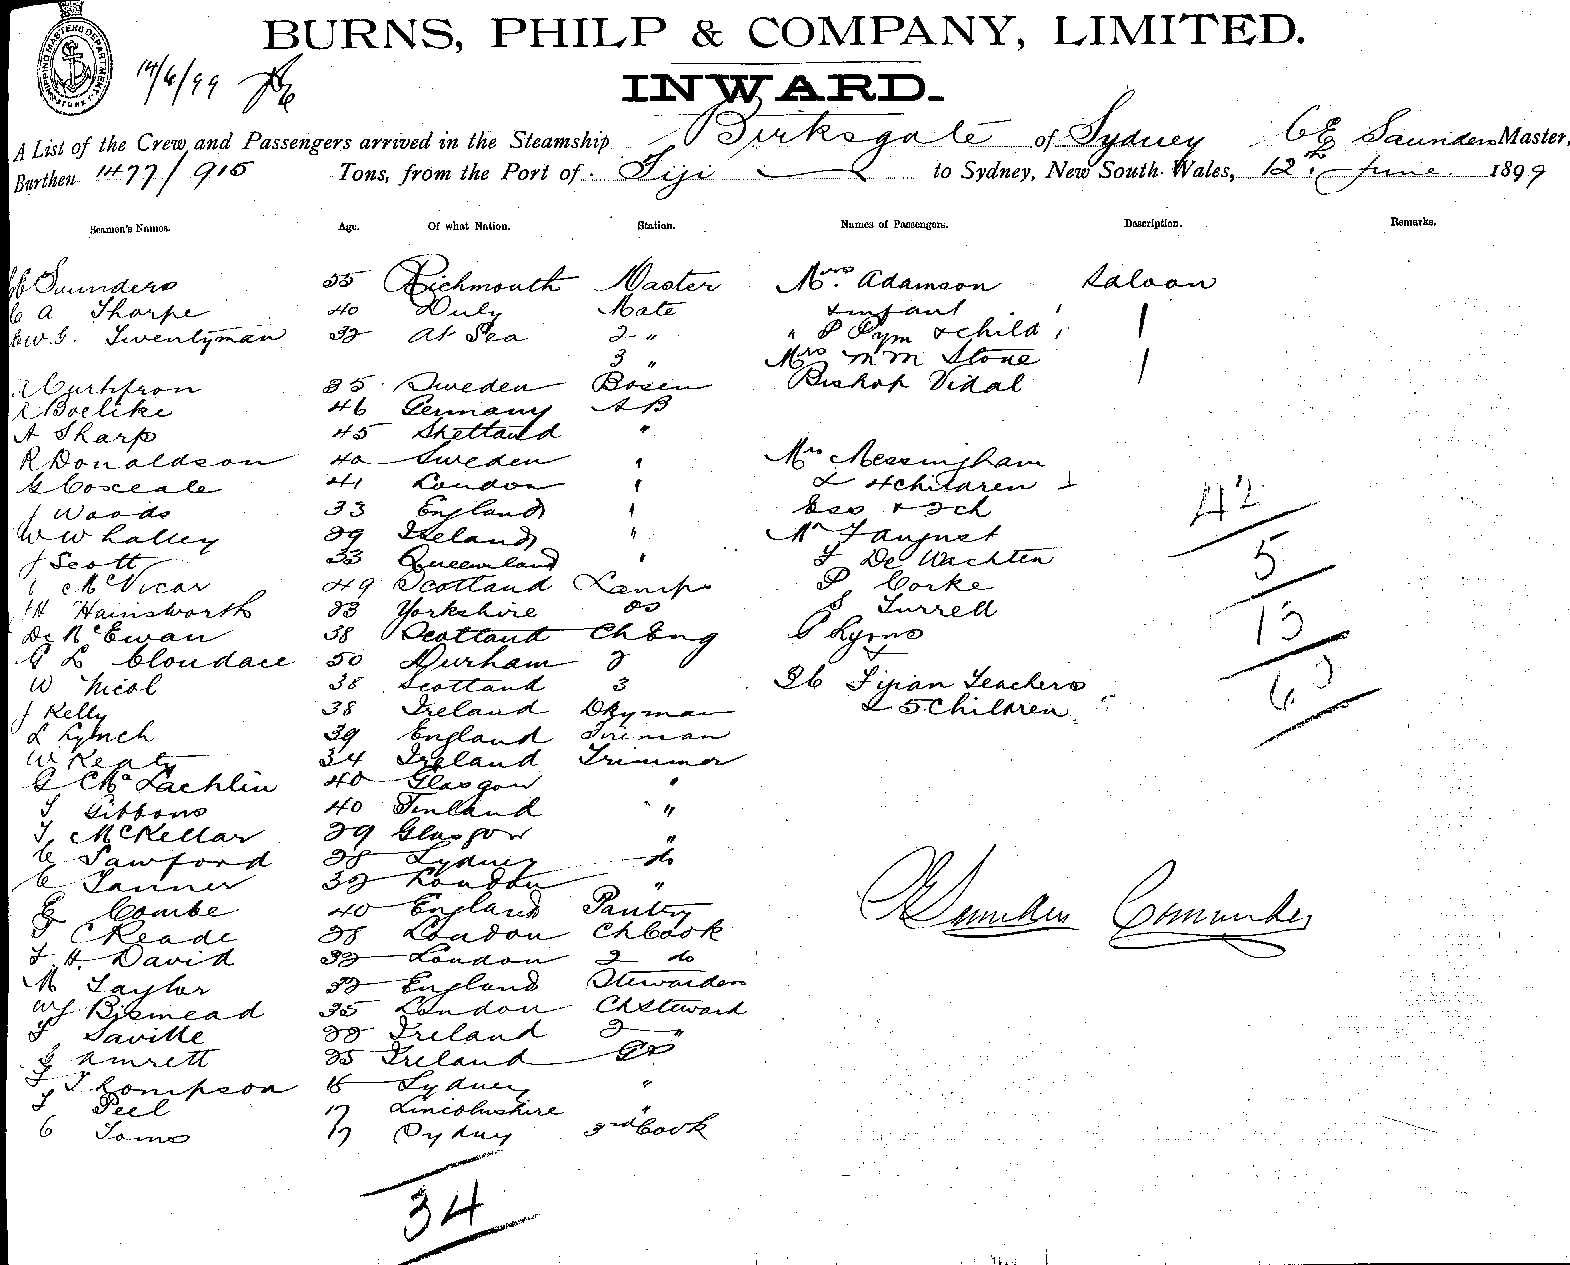 BURNS, PHILP & COMPANY, LIMITED.
14/6/99
INWARD.
A List of the Crew and Passengers arrived in the Steamship Birksgate of Sydney CE Saunders Master,
Burthen 1477/915 Tons, from the Port of Fiji to Sydney, New South Wales, 12th June 1899
Seamen's Names. Age. Of what Nation. Station. Names of Passengers. Description. Remarks.
Saunders 55 Richmouth Master Mrs. Adamson Saloon
A Thorpe 40 Duly Mate & infant
Twentyman 32 At Sea 2 " " P Pym & child
3 " Mrs M M Stone
35 Sweden Bosen Bishop Vidal
Boelike 46 Germany AB
A Sharp 45 Shetland "
R Donaldson 40 Sweden " Mrs Messingham
G Coxeale 41 London " & 4 children
J Woods 33 England " & 2 ch
W Whalley 29 Ireland " Mr F August
J Scott 33 Queensland " F De Wachten
McVicar 49 Scotland Lamps P Corke
H Hainsworth 23 Yorkshire do S Turrell
D McEwan 38 Scotland Ch Eng P Lyons
G L Cloudace 50 Durham 2
W Nicol 38 Scotland 3 26 Fijian Teachers
J Kelly 38 Ireland Dkyman & 5 Children
L Lynch 39 England Fireman
W Keaty 34 Ireland Trimmer
G McLachlin 40 Glasgow "
S Gibbons 40 Finland "
T McKellar 29 Glasgow "
C Sawford 28 Sydney do
C Tanner 32 London "
E Combe 40 England Pantry
T C Reade 28 London Ch Cook
F. H. David 32 London 2 do
M Taylor 32 England Stewardess
WJ Bismead 35 London Ch Steward
J Saville 22 Ireland 2 "
J Amrett 25 Ireland
F Thompson 18 Sydney "
S Peel 17 Lincolnshire "
C Toms 17 Sydney 3rd Cook
42
5
13
60
CE Saunders Commander
34